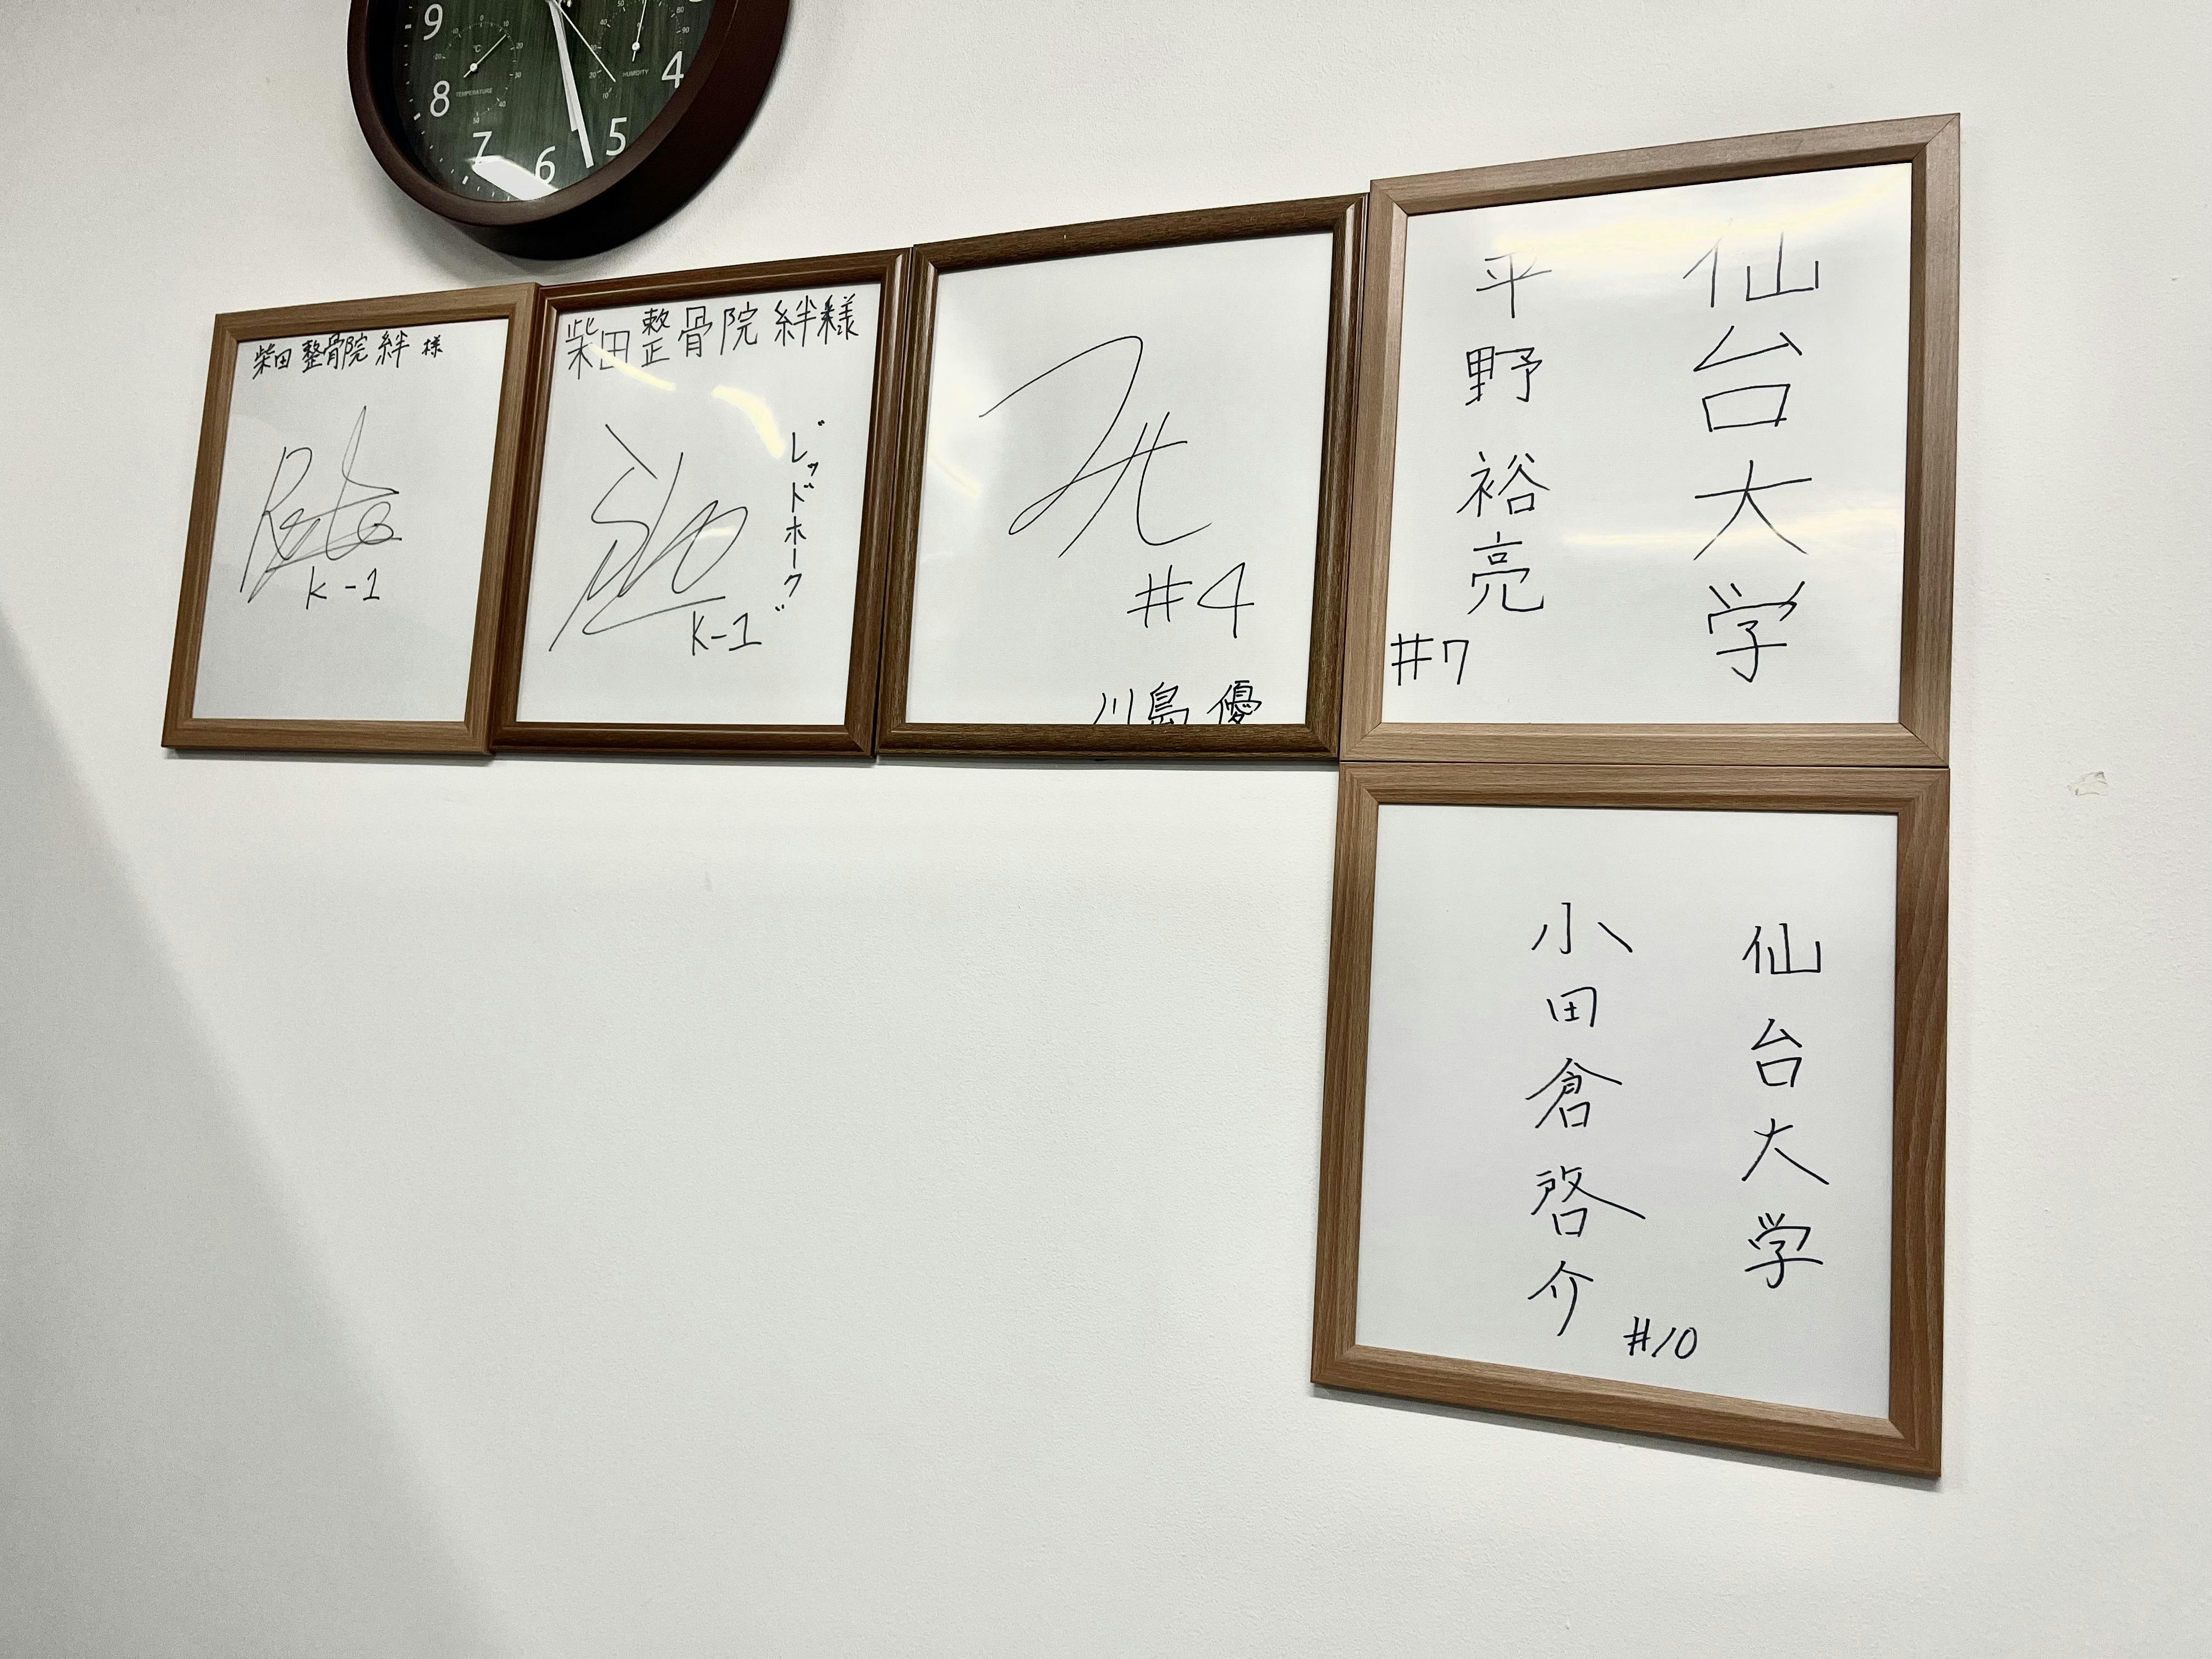 9
8
7
6
5
4
TEMPERATURE
HUMIDITY
°C
柴田整骨院 絆 様
K-1
柴田整骨院 絆様
"レッドホーク"
K-1
#4
川島 優
仙台大学
平野裕亮
#7
仙台大学
小田倉啓介
#10